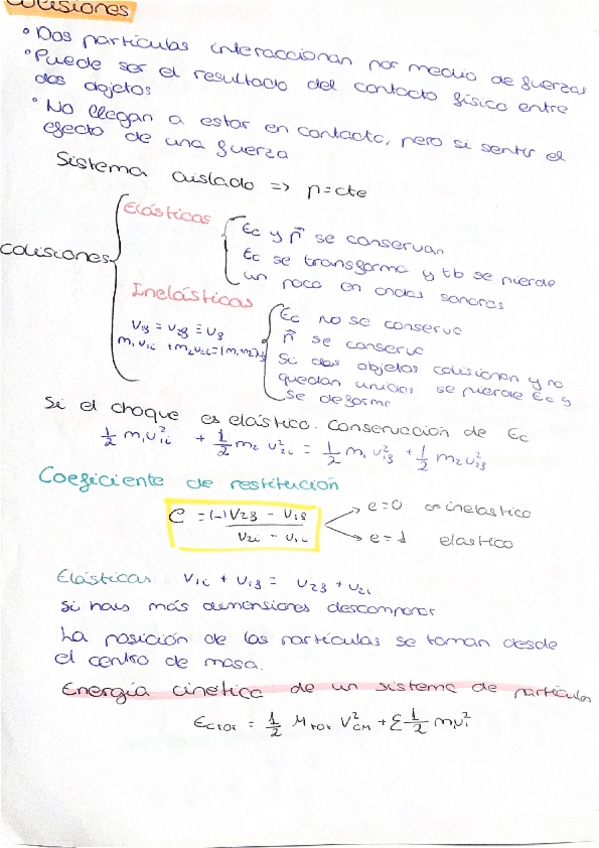 COLISIONES
° Dos partículas interaccionan por medio de fuerzas
° Puede ser el resultado del contacto físico entre
dos objetos
° No llegan a estar en contacto, pero si sentir el
efecto de una fuerza
Sistema aislado => p=cte
COLISIONES
Elásticas
Ec y p⃗ se conservan
Ec se transforma y tb se pierde
un poco en ondas sonoras
Inelásticas
V1f = V2f = Vf
m1V1i + m2V2i = (m1+m2)Vf
Ec no se conserva
p⃗ se conserva
Si dos objetos colisionan y no
quedan unidos se pierde Ec y
se deforma
Si el choque es elástico. Conservación de Ec
1/2 m1v²1i + 1/2 m2 v²2i = 1/2 m1 v²1f + 1/2 m2v²2f
Coeficiente de restitución
e = (-) V2f - V1f / V2i - V1i
e=0 inelastico
e=1 elastico
Elásticas V1i + V1f = V2f + V2i
Si hais más dimensiones descomponer
La posición de las partículas se toman desde
el centro de masa.
Energía cinética de un sistema de partículas
ECTOT = 1/2 MTOT V²CM + Σ 1/2 miv²i